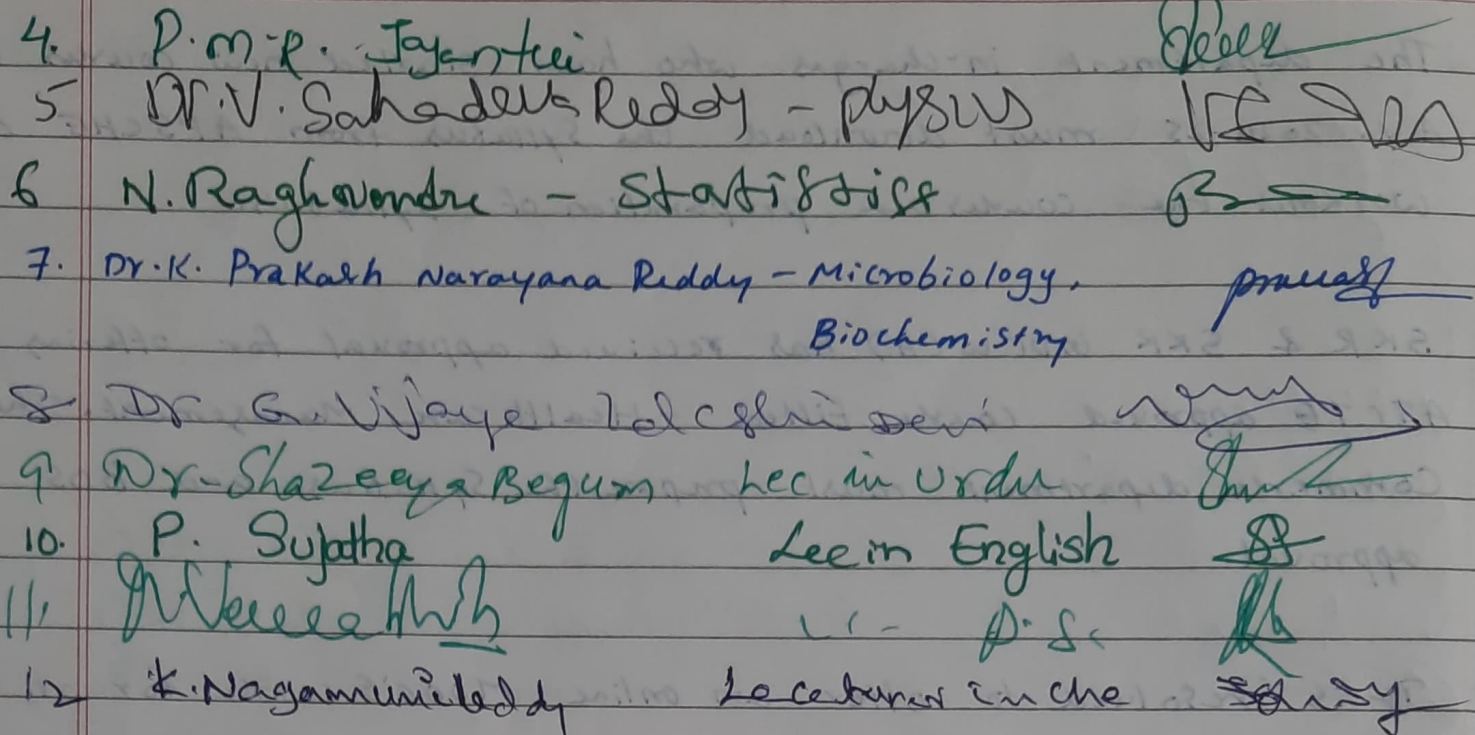 4. P.M.R. Jayanthi
5 Dr. V. Sahadeva Reddy - physics
6 N. Raghavendra - Statistics
7. Dr. K. Prakash Narayana Reddy - Microbiology.
Biochemistry
8 Dr G. Vijaya Lakshmi Devi
9 Dr. Shazeeya Begum Lec in Urdu
10. P. Sujatha Lec in English
11.
12 K. Nagamunireddy Lecturer in che